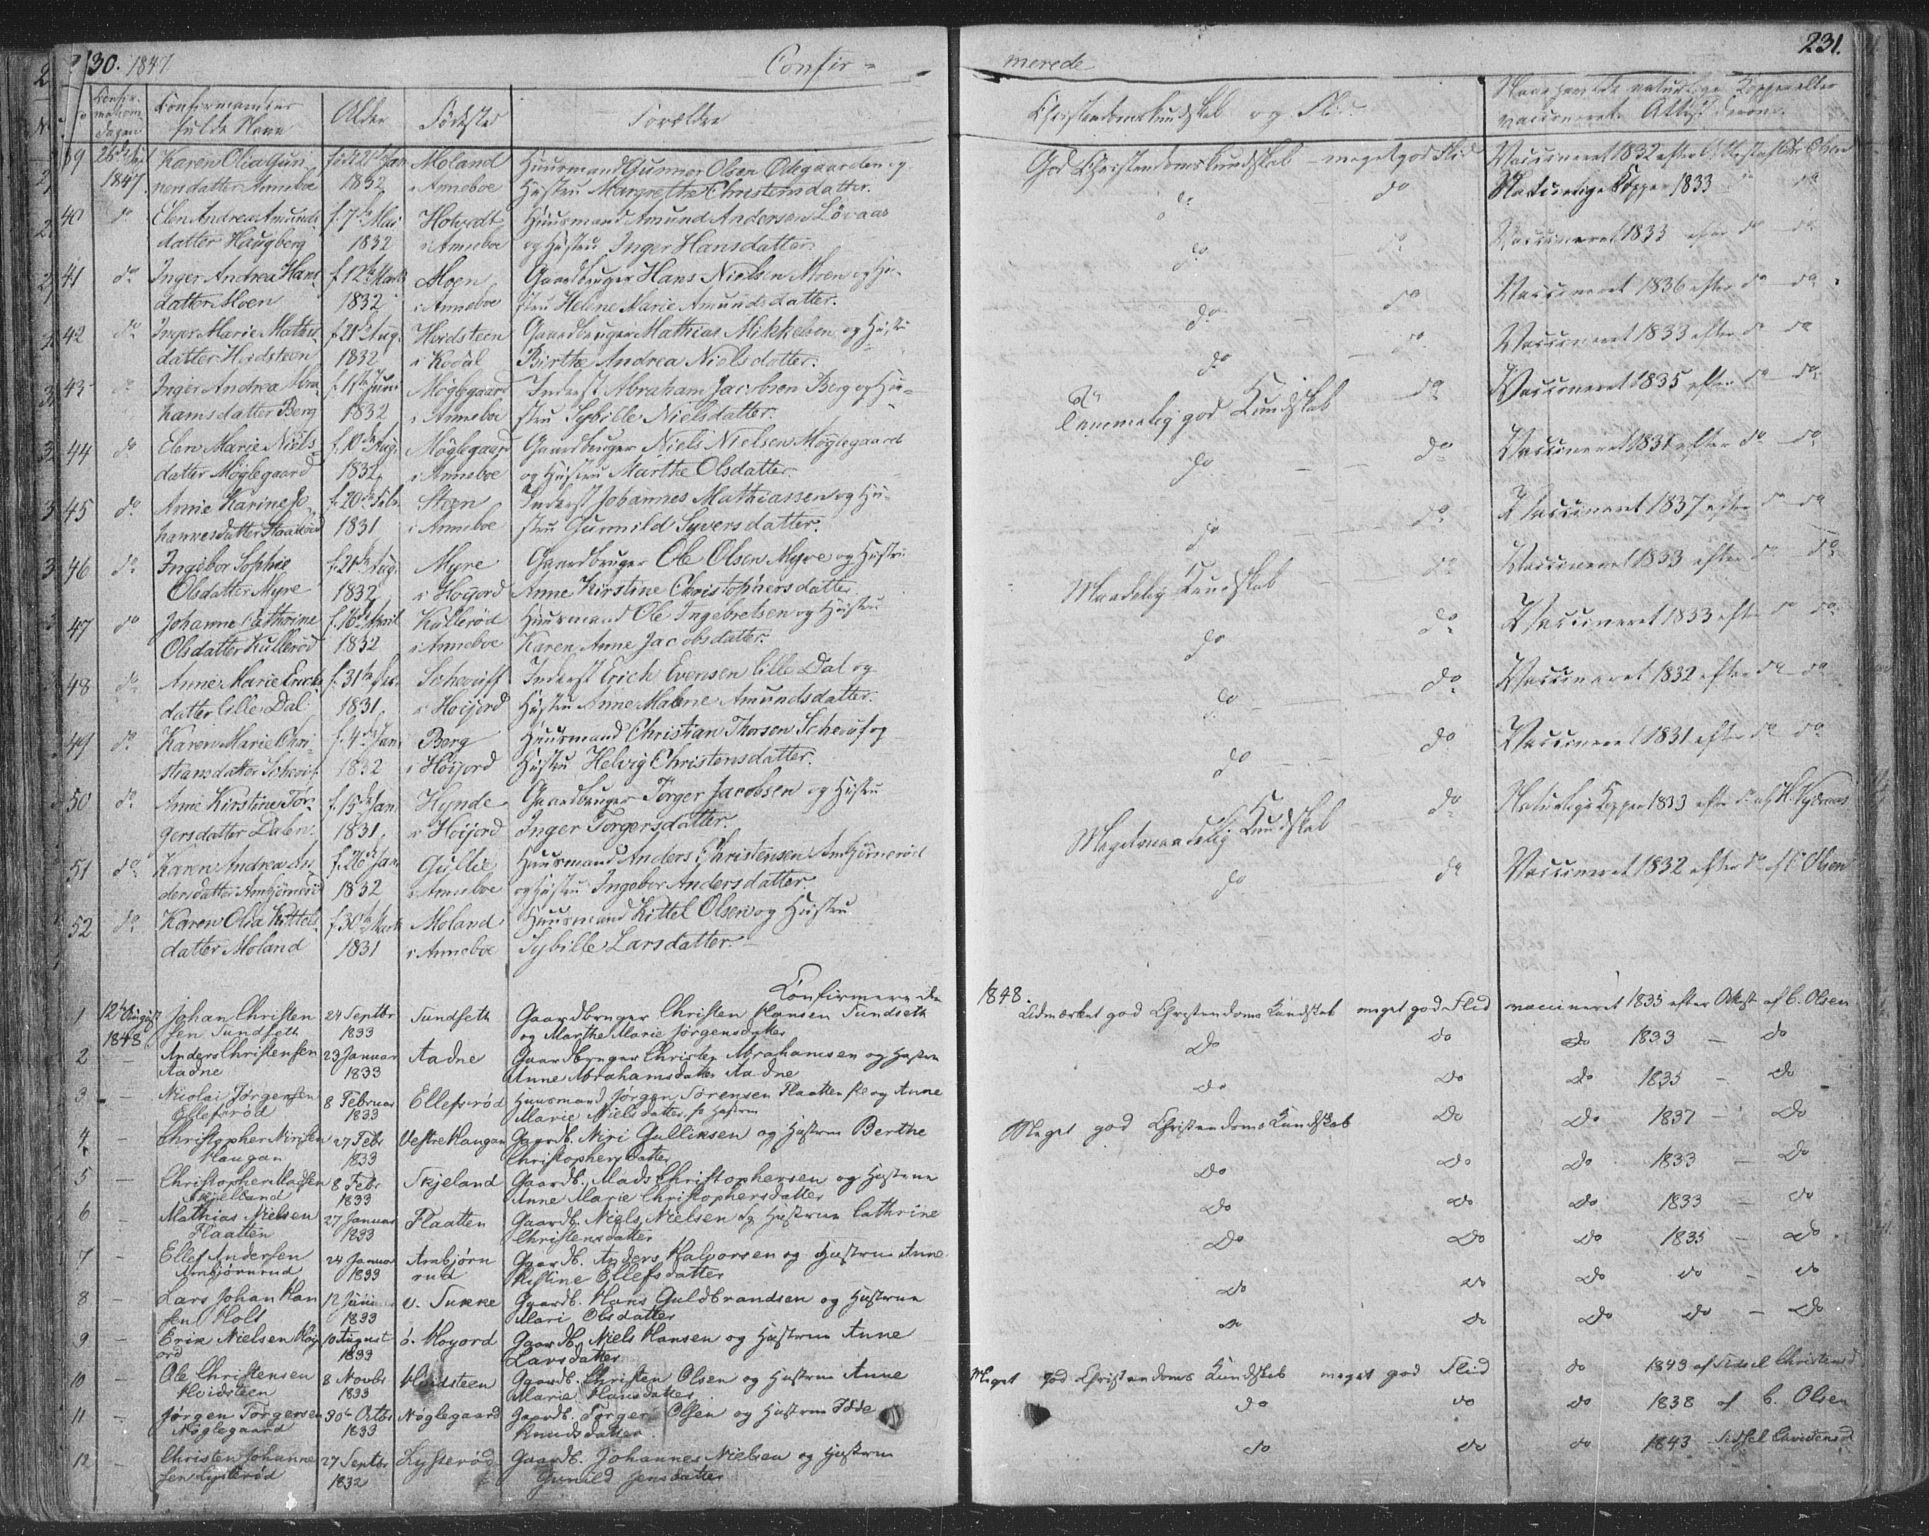 230. 1847
Confir-
Confirmanter
fulde Navn
Alder
Fødested
Forældre
39 26de
1847 Karen Olia Gun-
nersdatter Anneboe
1832
Moland
i Anneboe
Huusmand Gunner Olsen Odegaarden og
Hustru Margrethe Christensdatter.
40 do Elen Andrea Amunds
datter Haugberg
f. 7de Mai
1832
i Anneboe
Huusmand Amund Andersen Løvaas
og Hustru Inger Hansdatter.
41 do Inger Andrea Hans
datter Moen
f. 12te Marts
1832
Moen
i Anneboe
Gaardbruger Hans Nielsen Moen og Hu-
stru Helene Marie Amundsdatter.
42 do Inger Marie Mathis
datter Hvidsteen
f. 21de Aug.
1832
Hvidsteen
i Kodal
Gaardbruger Mathias Mikkelsen og Hustru
Birthe Andrea Nielsdatter.
43 do Inger Andrea Abra
hamsdatter Berg
1832
Møglegaard
i Anneboe
Inderst Abraham Jacobsen Berg og Hu-
stru Sybille Nielsdatter.
44 do Elen Marie Niels-
datter Møglegaard
f. 10de Aug.
1832
Møglegaard
i Anneboe
Gaardbruger Niels Nielsen Møglegaard
og Hustru Marthe Olsdatter
45 do Anne Karine Jo
hannesdatter
f. 20de Febr.
1831
i Anneboe
Inderst Johannes Mathiassen og Hu-
stru Gunnild Syversdatter.
46 do Ingebor Sophie
Olsdatter Myre
f. 21de Aug.
1832
Myre
i Hoijord
Gaardbruger Ole Olsen Myre og Hustru
Anne Kirstine Christophersdatter
47 do Johanne Cathrine
Olsdatter Kullerød
f. 16de April
1832
Kullerød
i Anneboe
Huusmand Ole Ingebretsen og Hustru
Karen Anne Jacobsdatter.
48 do Anne Marie Erichs
datter lille Dal
1831.
i Hoijord
Inderst Erich Evensen lille Dal og
Hustru Anne Malene Amundsdatter.
49 do Karen Marie Chri-
stiansdatter
f. 4de Jan.
1832
Berg
i Hoijord
Huusmand Christian Thorsen og
Hustru Helvig Christensdatter.
50 do Anne Kirstine Tor-
gersdatter Dalen.
f. 15de Jan.
1831.
Hynde
i Hoijord
Gaardbruger Torger Jacobsen og Hustru
Inger Torgersdatter.
51 do Karen Andrea An
dersdatter
f. 26de Jan.
1832
Gullie
i Anneboe
Huusmand Anders Christensen
og Hustru Ingebor Andersdatter.
52 do Karen Olia Kittels
datter Moland
f. 30te Marts
1831
Moland
i Anneboe
Huusmand Kittel Olsen og Hustru
Sybille Larsdatter.
Confirmerede
1 12te August
1848
Johan Christen
sen Sundseth
24 Septbr
1833
Sundseth
Gaardbruger Christen Hansen Sundseth
og Marthe Marie Jørgensdatter
2 – Anders Christensen
Aadne
23 Januar
1833
Aadne
Gaardbruger Christen Abrahamsen og Hustru
Anne Abrahamsdatter Aadne
3 – Nicolai Jørgensen
Ellefsrød
8 Februar
1833
Ellefsrød
Huusmand Jørgen Sørensen Flaatten og Anne
Marie Nielsdatter Hustru
4 – Christopher Nirisen
Haugan
27 Febr
1833
Vestre Haugan
Gaardb. Niri Gulliksen og Hustrue Berthe
Christophersdatter
5 – Christopher Madsen
Skjelland
8 Febr
1833
Skjeland
Gaardb. Mads Christophersen og Hustrue
Anne Marie Christophersdatter
6 – Mathias Nielsen
Flaatten
27 Januar
1833
Flaatten
Gaardb. Niels Nielsen og Hustrue Cathrine
Christensdatter
7 – Ellef Andersen
Arnbjørnrud
24 Januar
1833
Arnbjørn
rud
Gaardb. Anders Halvorsen og Hustrue Anne
Kirstine Ellefsdatter
8 – Lars Johan Han
sen Holt
12 Juni
1833
v. Sukke
Gaardb. Hans Guldbrandsen og Hustrue
Mari Olsdatter
9 – Erik Nielsen Høy
ord
10 August
1833
ö. Høyord
Gaardb. Niels Hansen og Hustrue Anne
Larsdatter
10 – Ole Christensen
Hvidsteen
8 Novbr
1833
Hvidsteen
Gaardb. Christen Olsen og Hustrue Anne
Marie Hansdatter
11 – Jørgen Torgersen
Møglegaard
30te Octbr
1833
Møglegaard
Gaardb. Torger Olsen og Hustrue
Knudsdatter
12 – Christen Johanne
sen Lysterød
27 Septbr
1832
Lysterød
Gaardb. Johannes Nielsen og Hustrue
Gunild Jensdatter
merede
231.
Christendomskundskab og Flid
Naar havde naturlige Kopper eller
vaccineret. Attest derom.
God Christendomskundskab – meget god Flid Vaccineret 1832 efter Attest af Chr. Olsen
do do Naturlige Kopper 1833 do do
do do Vaccineret 1833 efter do do
do do Vaccineret 1836 efter do do
do do Vaccineret 1833 efter do do
do do Vaccineret 1835 efter do do
Temmelig god Kundskab
do do Vaccineret 1831 efter do do
do do Vaccineret 1837 efter do do
Maadelig Kundskab do Vaccineret 1833 efter do do
do do Vaccineret 1833 efter do do
do do Vaccineret 1832 efter do do
do do Vaccineret 1831 efter do do
Megetmaadelig Kundskab do Naturlige Kopper 1833 efter do af
do do Vaccineret 1832 efter do af C. Olsen
1848.
Udmærket god Christendoms Kundskab meget god Flid vaccineret 1835 efter Attest af C. Olsen
Do do Do 1833 – do
Do Do Do 1835 – Do
Meget god Christendoms Kundskab Do Do 1837 – Do
Do Do Do 1833 – Do
Do do Do 1833 – do
Do Do Do 1835 – do
do do Do do – do
do do Do do – Do
Meget god Christendoms Kundskab meget god Flid do 1843 af Sidsel Christensd
do do do 1838 af C. Olsen
do do do 1843 Sidsel